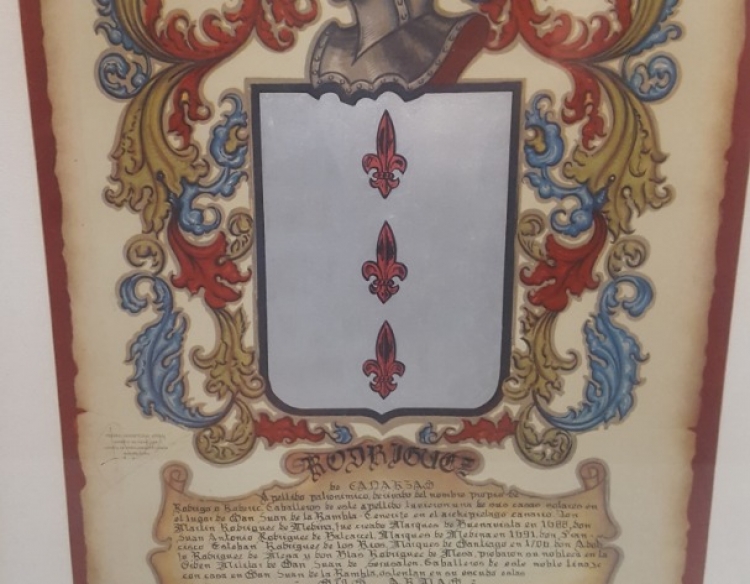 RODRIGUEZ
de CANARIAS
Apellido patronimico, derivado del nombre propio de
Rodrigo o Roderic. Caballeros de este apellido tuvieron una de sus casas solares en
el lugar de San Juan de la Rambla Tenerife en el archipielago canario. Don
Martin Rodriguez de Medina, fue creado Marques de Buenavista en 1688, don
Juan Antonio Rodriguez de Balcarcel Marques de Medina en 1691, don Fran-
cisco Esteban Rodriguez de los Rios, Marques de Santiago en 1706, don
le Rodriguez de Mena y don Blas Rodriguez de Mena, probaron su nobleza en la
Orden Militar de San Juan de Jerusalen. Caballeros de este noble linaje
con casa en San Juan de la Rambla, ostentan en su escudo estas
ARMAS